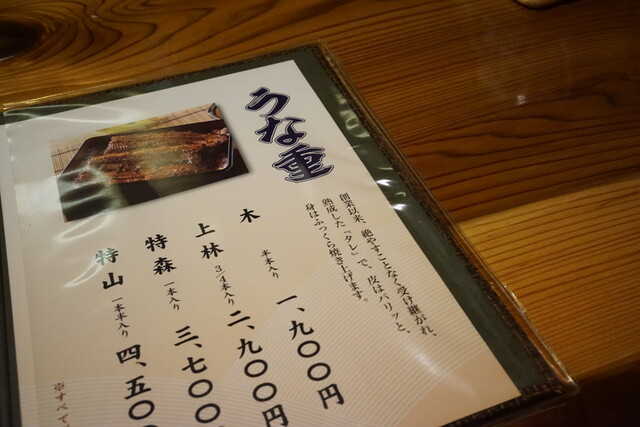 うな重
創業以来、絶やすことなく受け継がれ、
熟成した『タレ』で、皮はパリッと、
身はふっくら焼き上げます。
木 半本入り 一、九〇〇円
上林 3/4本入り 二、九〇〇円
特森 一本入り 三、七〇〇
特山 一本半入り 四、五〇
※すべて